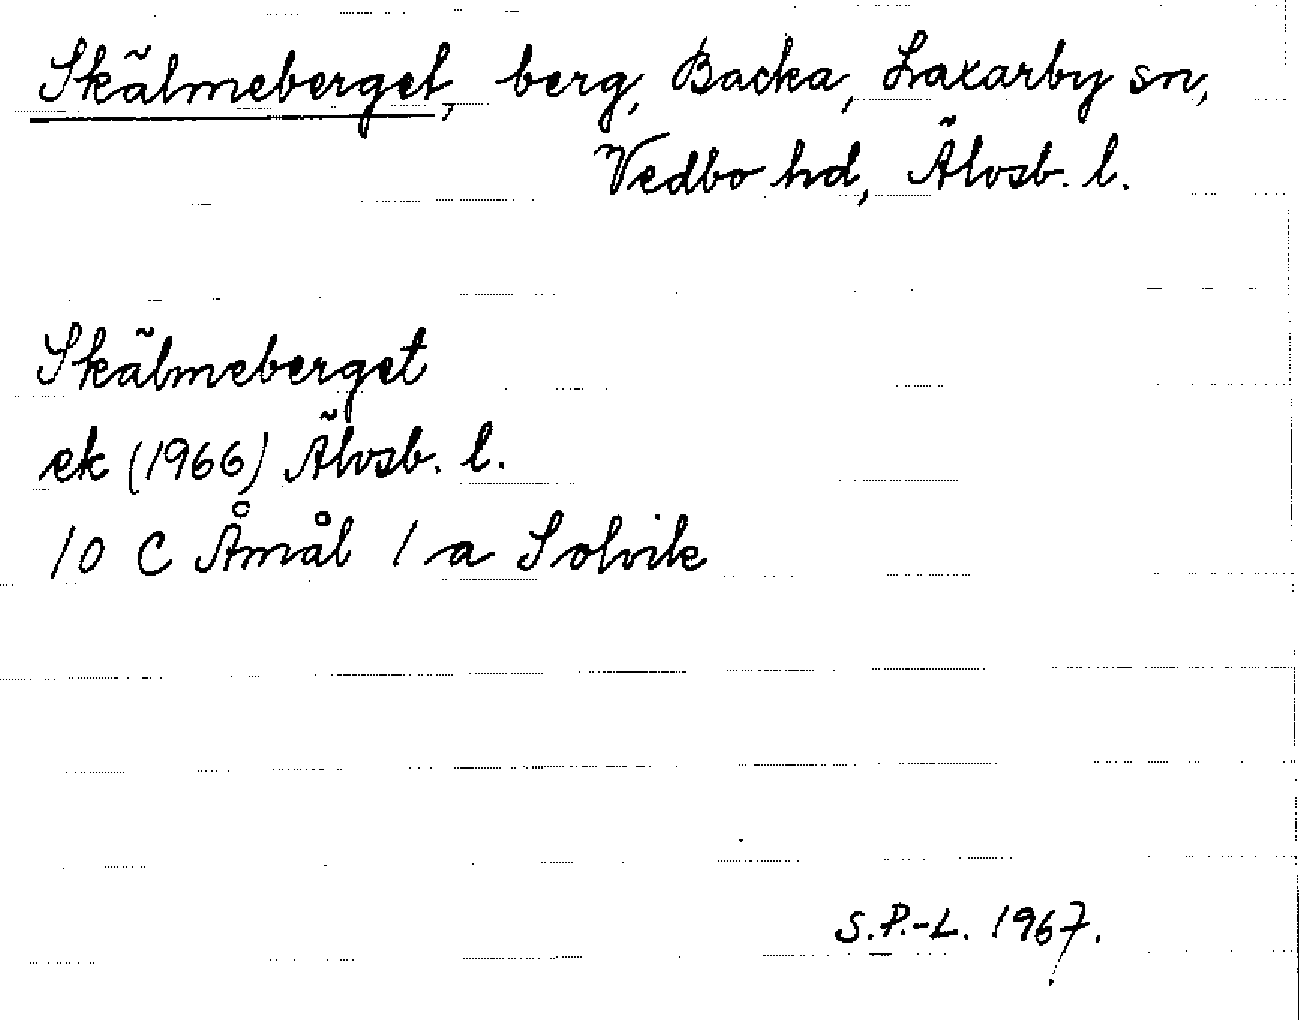 Skälmeberget, berg, Backa, Laxarby sn,
Vedbo hd, Älvsb. l.
Skälmeberget
ek (1966) Älvsb. l.
10 C Åmål 1 a Solvik
S.P.-L. 1967.